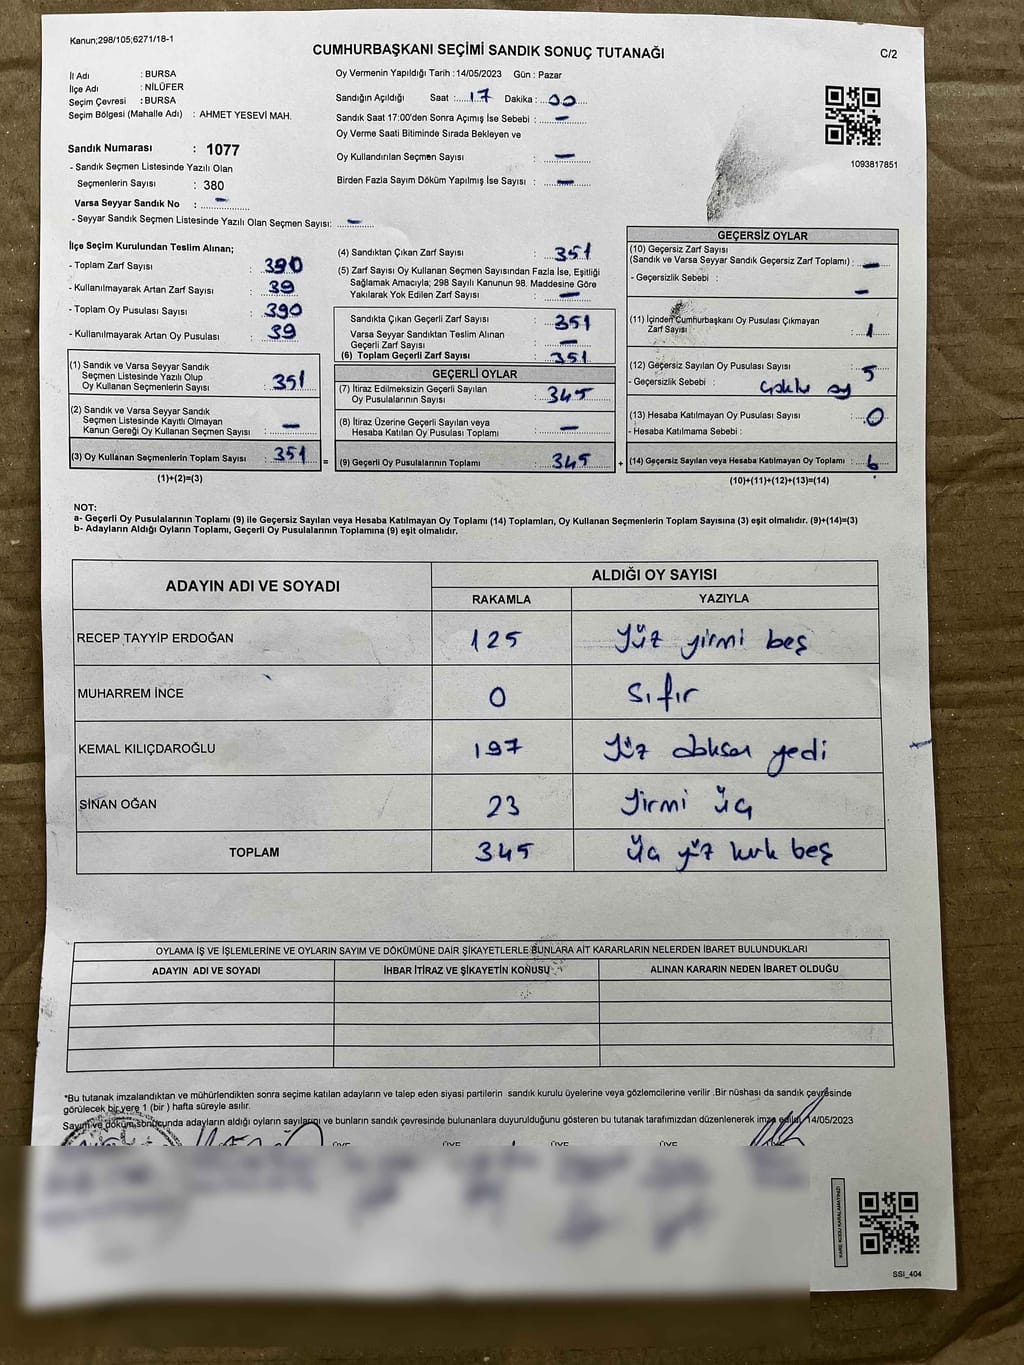 Kanun;298/105;6271/18-1
CUMHURBAŞKANI SEÇİMİ SANDIK SONUÇ TUTANAĞI
C/2
İl Adı : BURSA
İlçe Adı : NİLÜFER
Seçim Çevresi : BURSA
Seçim Bölgesi (Mahalle Adı) : AHMET YESEVİ MAH.
Sandık Numarası : 1077
- Sandık Seçmen Listesinde Yazılı Olan
Seçmenlerin Sayısı : 380
Varsa Seyyar Sandık No : -
- Seyyar Sandık Seçmen Listesinde Yazılı Olan Seçmen Sayısı: -
Oy Vermenin Yapıldığı Tarih : 14/05/2023 Gün : Pazar
Sandığın Açıldığı Saat : 17 Dakika : 00
Sandık Saat 17:00'den Sonra Açımış İse Sebebi : -
Oy Verme Saati Bitiminde Sırada Bekleyen ve
Oy Kullandırılan Seçmen Sayısı : -
Birden Fazla Sayım Döküm Yapılmış İse Sayısı : -
1093817851
İlçe Seçim Kurulundan Teslim Alınan;
- Toplam Zarf Sayısı : 390
- Kullanılmayarak Artan Zarf Sayısı : 39
- Toplam Oy Pusulası Sayısı : 390
- Kullanılmayarak Artan Oy Pusulası : 39
(1) Sandık ve Varsa Seyyar Sandık
Seçmen Listesinde Yazılı Olup
Oy Kullanan Seçmenlerin Sayısı : 351
(2) Sandık ve Varsa Seyyar Sandık
Seçmen Listesinde Kayıtlı Olmayan
Kanun Gereği Oy Kullanan Seçmen Sayısı : -
(3) Oy Kullanan Seçmenlerin Toplam Sayısı : 351
(1)+(2)=(3)
(4) Sandıktan Çıkan Zarf Sayısı : 351
(5) Zarf Sayısı Oy Kullanan Seçmen Sayısından Fazla İse, Eşitliği
Sağlamak Amacıyla; 298 Sayılı Kanunun 98. Maddesine Göre
Yakılarak Yok Edilen Zarf Sayısı : -
Sandıkta Çıkan Geçerli Zarf Sayısı : 351
Varsa Seyyar Sandıktan Teslim Alınan
Geçerli Zarf Sayısı : -
(6) Toplam Geçerli Zarf Sayısı : 351
GEÇERLİ OYLAR
(7) İtiraz Edilmeksizin Geçerli Sayılan
Oy Pusulalarının Sayısı : 345
(8) İtiraz Üzerine Geçerli Sayılan veya
Hesaba Katılan Oy Pusulası Toplamı : -
= (9) Geçerli Oy Pusulalarının Toplamı : 345
GEÇERSİZ OYLAR
(10) Geçersiz Zarf Sayısı
(Sandık ve Varsa Seyyar Sandık Geçersiz Zarf Toplamı) : -
- Geçersizlik Sebebi : -
(11) İçinden Cumhurbaşkanı Oy Pusulası Çıkmayan
Zarf Sayısı : 1
(12) Geçersiz Sayılan Oy Pusulası Sayısı : 5
- Geçersizlik Sebebi : oy
(13) Hesaba Katılmayan Oy Pusulası Sayısı : 0
- Hesaba Katılmama Sebebi :
+ (14) Geçersiz Sayılan veya Hesaba Katılmayan Oy Toplamı : 6
(10)+(11)+(12)+(13)=(14)
NOT:
a- Geçerli Oy Pusulalarının Toplamı (9) ile Geçersiz Sayılan veya Hesaba Katılmayan Oy Toplamı (14) Toplamları, Oy Kullanan Seçmenlerin Toplam Sayısına (3) eşit olmalıdır. (9)+(14)=(3)
b- Adayların Aldığı Oyların Toplamı, Geçerli Oy Pusulalarının Toplamına (9) eşit olmalıdır.
ADAYIN ADI VE SOYADI
ALDIĞI OY SAYISI
RAKAMLA YAZIYLA
RECEP TAYYİP ERDOĞAN 125 Yüz yirmi beş
MUHARREM İNCE 0 Sıfır
KEMAL KILIÇDAROĞLU 197 Yüz doksan yedi
SİNAN OĞAN 23 Yirmi üç
TOPLAM 345 Üç yüz kırk beş
OYLAMA İŞ VE İŞLEMLERİNE VE OYLARIN SAYIM VE DÖKÜMÜNE DAİR ŞİKAYETLERLE BUNLARA AİT KARARLARIN NELERDEN İBARET BULUNDUKLARI
ADAYIN ADI VE SOYADI İHBAR İTİRAZ VE ŞİKAYETİN KONUSU ALINAN KARARIN NEDEN İBARET OLDUĞU
*Bu tutanak imzalandıktan ve mühürlendikten sonra seçime katılan adayların ve talep eden siyasi partilerin sandık kurulu üyelerine veya gözlemcilerine verilir .Bir nüshası da sandık çevresinde
görülecek bir yere 1 (bir ) hafta süreyle asılır.
Sayım ve döküm sonucunda adayların aldığı oyların sayılarını ve bunların sandık çevresinde bulunanlara duyurulduğunu gösteren bu tutanak tarafımızdan düzenlenerek imza edildi. 14/05/2023
ÜYE ÜYE ÜYE ÜYE
KARE KODU KARALAMAYINIZ!
SSI_404